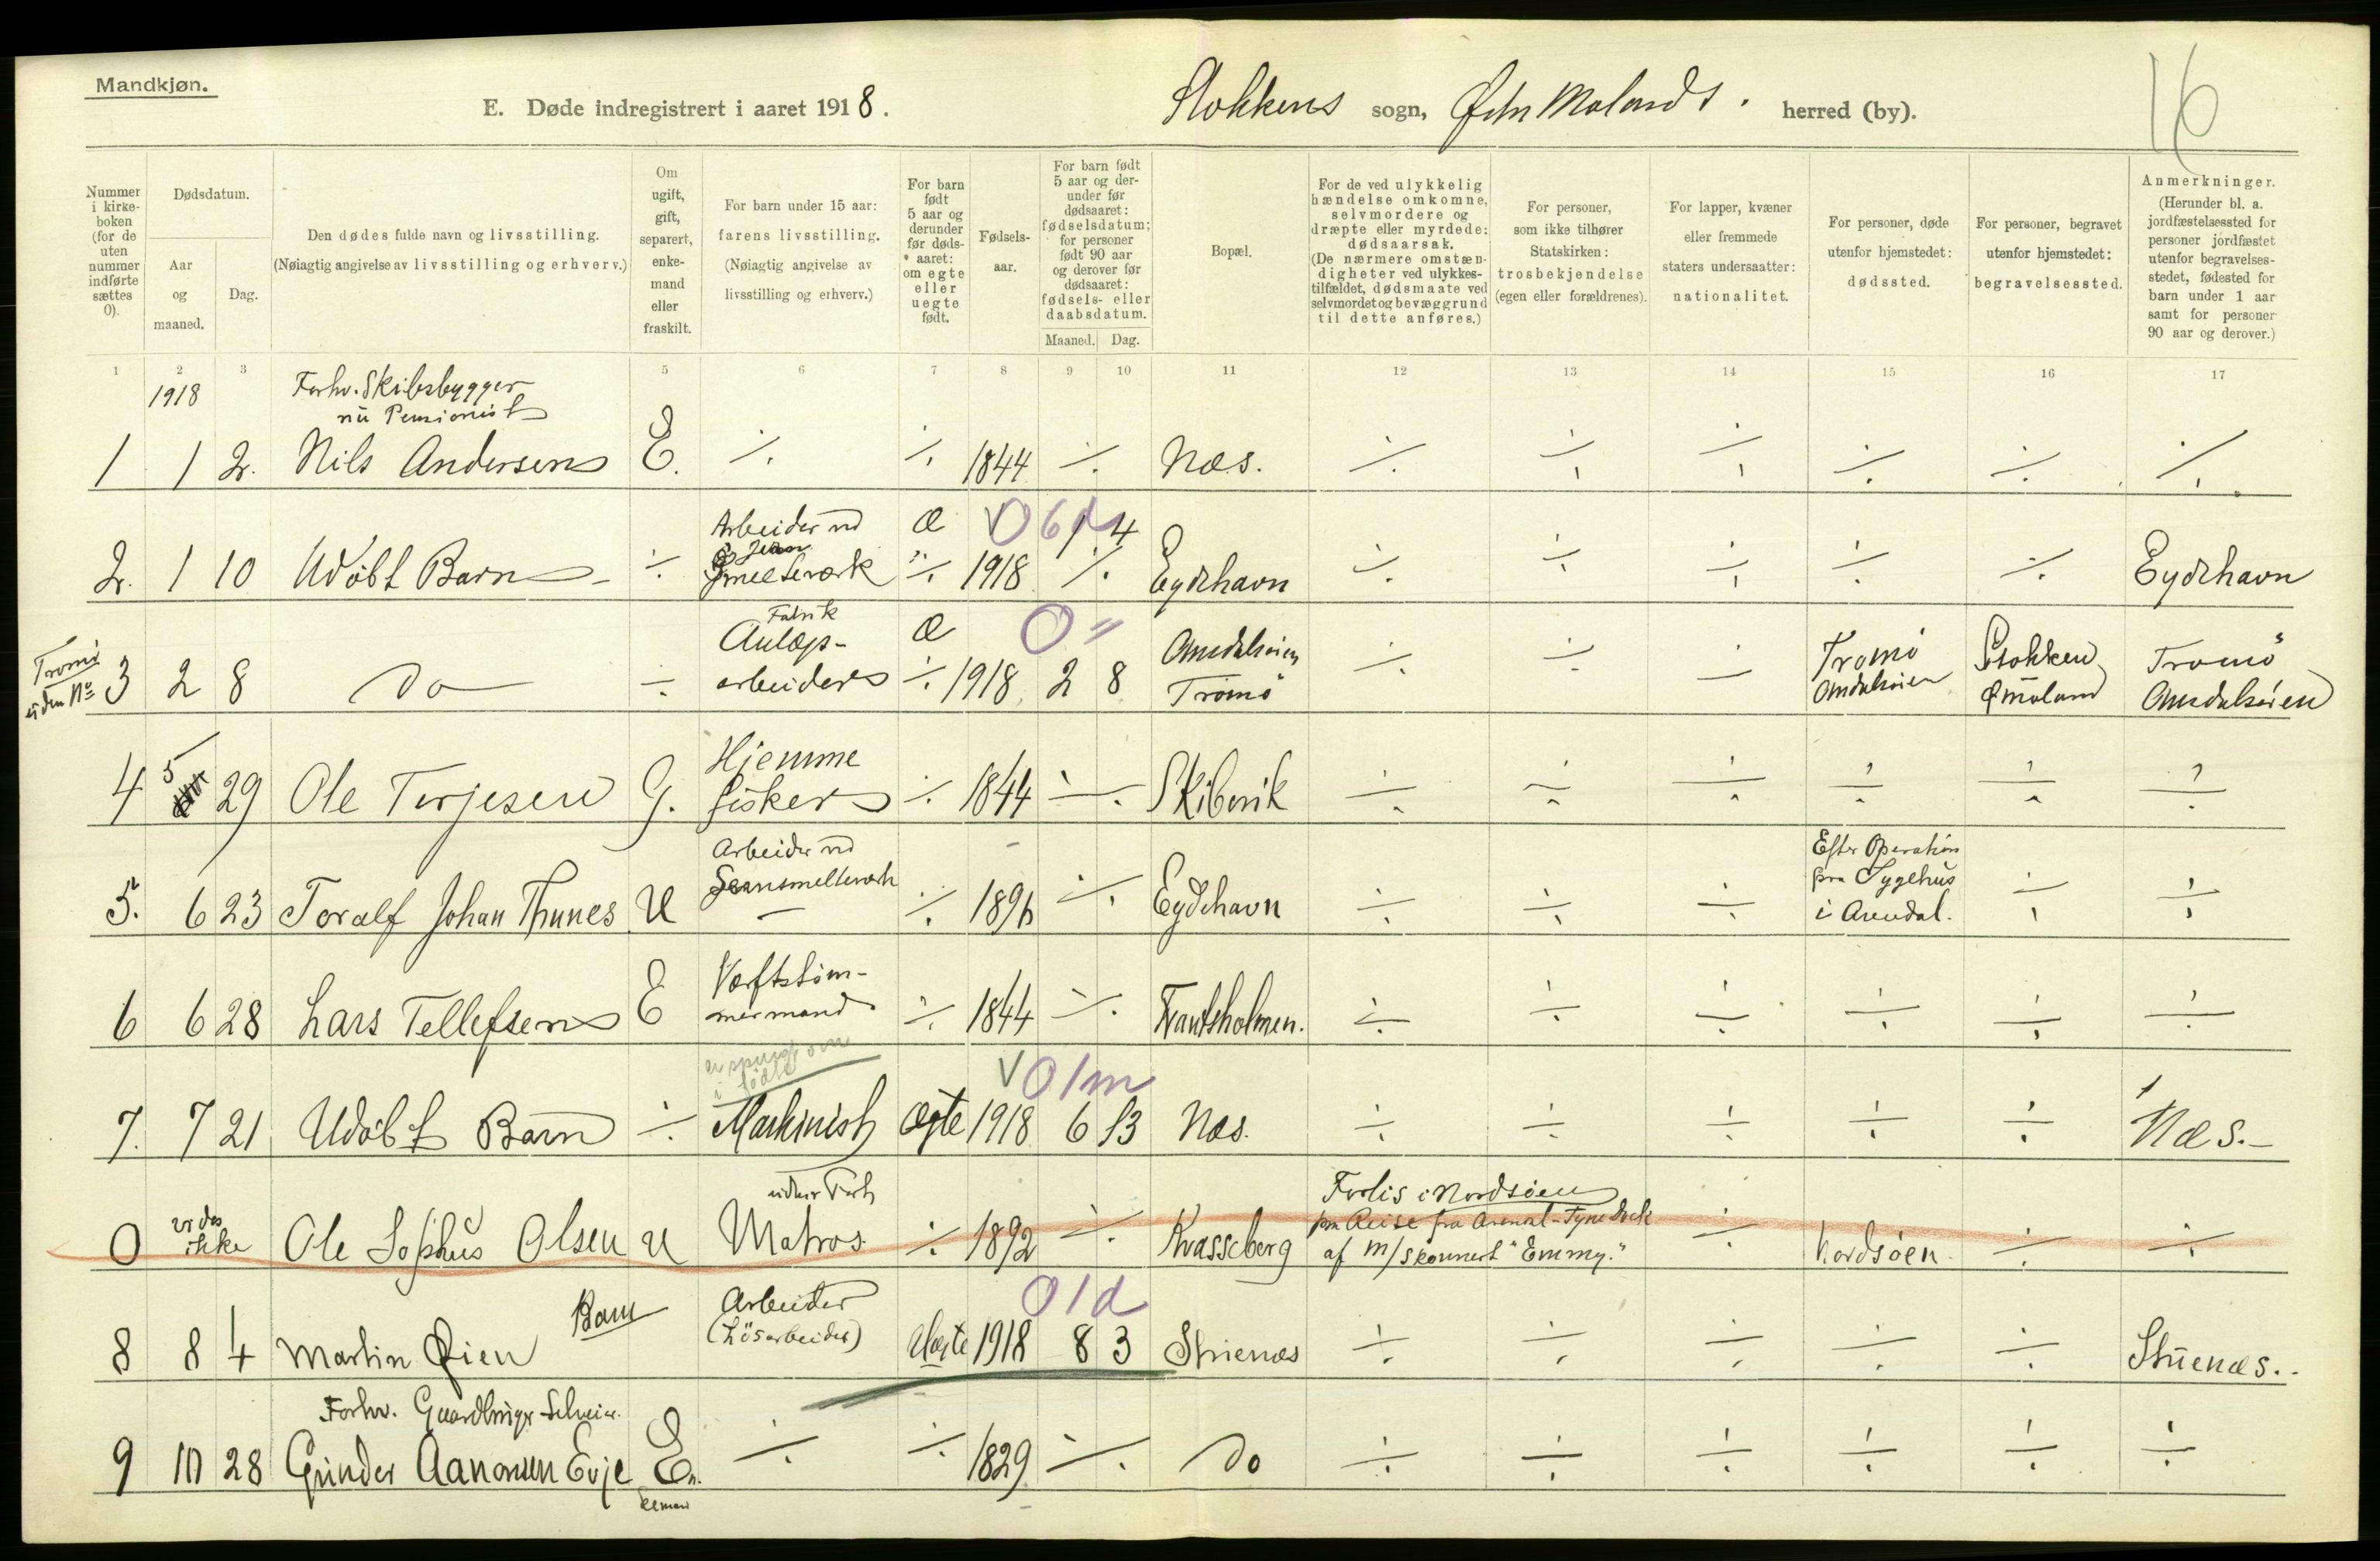 Mandkjøn.
E. Døde indregistrert i aaret 1918. Stokkens sogn, Østre Molands. herred (by).
16
Nummer i kirke-boken (for de uten nummer indførte sættes 0).
Dødsdatum.
Aar og maaned.
Dag.
Den dødes fulde navn og livsstilling.
(Nøiagtig angivelse av livsstilling og erhverv.)
Om ugift, gift, separert, enke-mand eller fraskilt.
For barn under 15 aar: farens livsstilling.
(Nøiagtig angivelse av livsstilling og erhverv.)
For barn født 5 aar og derunder før døds-aaret: om egte eller uegte født.
Fødsels-aar.
For barn født 5 aar og der-under før dødsaaret: fødselsdatum; for personer født 90 aar og derover før dødsaaret: fødsels- eller daabsdatum.
Maaned. Dag.
Bopæl.
For de ved ulykkelig hændelse omkomne, selvmordere og dræpte eller myrdede: dødsaarsak.
(De nærmere omstæn-digheter ved ulykkes-tilfældet, dødsmaate ved selvmordet og bevæggrund til dette anføres.)
For personer, som ikke tilhører Statskirken: trosbekjendelse (egen eller forældrenes).
For lapper, kvæner eller fremmede staters undersaatter: nationalitet.
For personer, døde utenfor hjemstedet: dødssted.
For personer, begravet utenfor hjemstedet: begravelsessted.
Anmerkninger.
(Herunder bl. a. jordfæstelsessted for personer jordfæstet utenfor begravelses-stedet, fødested for barn under 1 aar samt for personer 90 aar og derover.)
1 2 3 5 6 7 8 9 10 11 12 13 14 15 16 17
1918 Forhv. Skibsbygger
nu Pensionist
1 1 2. Nils Andersen E. ÷ ÷ 1844 ÷ Næs. ÷ ÷ ÷ ÷ ÷ ÷
Arbeider vd Æ V 0 6 d 4
Jern
2. 1 10 Udøbt Barn ÷ Smelteverk ÷ 1918 ÷ Eydehavn ÷ ÷ ÷ ÷ ÷ Eydehavn
Fabrik
Tromø Anlægs- Æ 0 " Amdalsøien Tromø Stokken Tromø
uden No 3 2 8 Do ÷ arbeider ÷ 1918 2 8 Tromø ÷ ÷ ÷ Amdalsøien Ø Moland Amdalsøien
5 Hjemme
4 29 Ole Terjesen G. fisker ÷ 1844 ÷ Skibvik ÷ ÷ ÷ ÷ ÷ ÷
Arbeider vd Efter Operation
Jernsmelteverk fra Sygehus
5. 6 23 Toralf Johan Thunes U ÷ 1896 ÷ Eydehavn ÷ ÷ ÷ i Arendal. ÷ ÷
Værftstøm-
6 6 28 Lars Tellefsen E mermand ÷ 1844 ÷ Frantsholmen. ÷ ÷ ÷ ÷ ÷ ÷
er spurgt om
V 0 1 m
7. 7 21 Udøbt Barn ÷ Maskinist Ægte 1918 6 13 Næs. ÷ ÷ ÷ ÷ ÷ Næs.-
Forlis i Nordsøen
vides paa Reise fra Arendal - Tyne Dock
0 ikke Ole Sophus Olsen U Matros ÷ 1892 ÷ Kvasseberg af M/skonnert "Emmy." ÷ Nordsøen. ÷ ÷
Barn Arbeider 0 1 d
(Løsarbeider)
8 8 4 Martin Øien Uægte 1918 8 3 Stuenæs ÷ ÷ ÷ ÷ ÷ Stuenæs.-
Forhv. Gaardbruger
9 10 28 Gunder Aanonsen Evje En. ÷ ÷ 1829 ÷ Do ÷ ÷ ÷ ÷ ÷ ÷
kemand